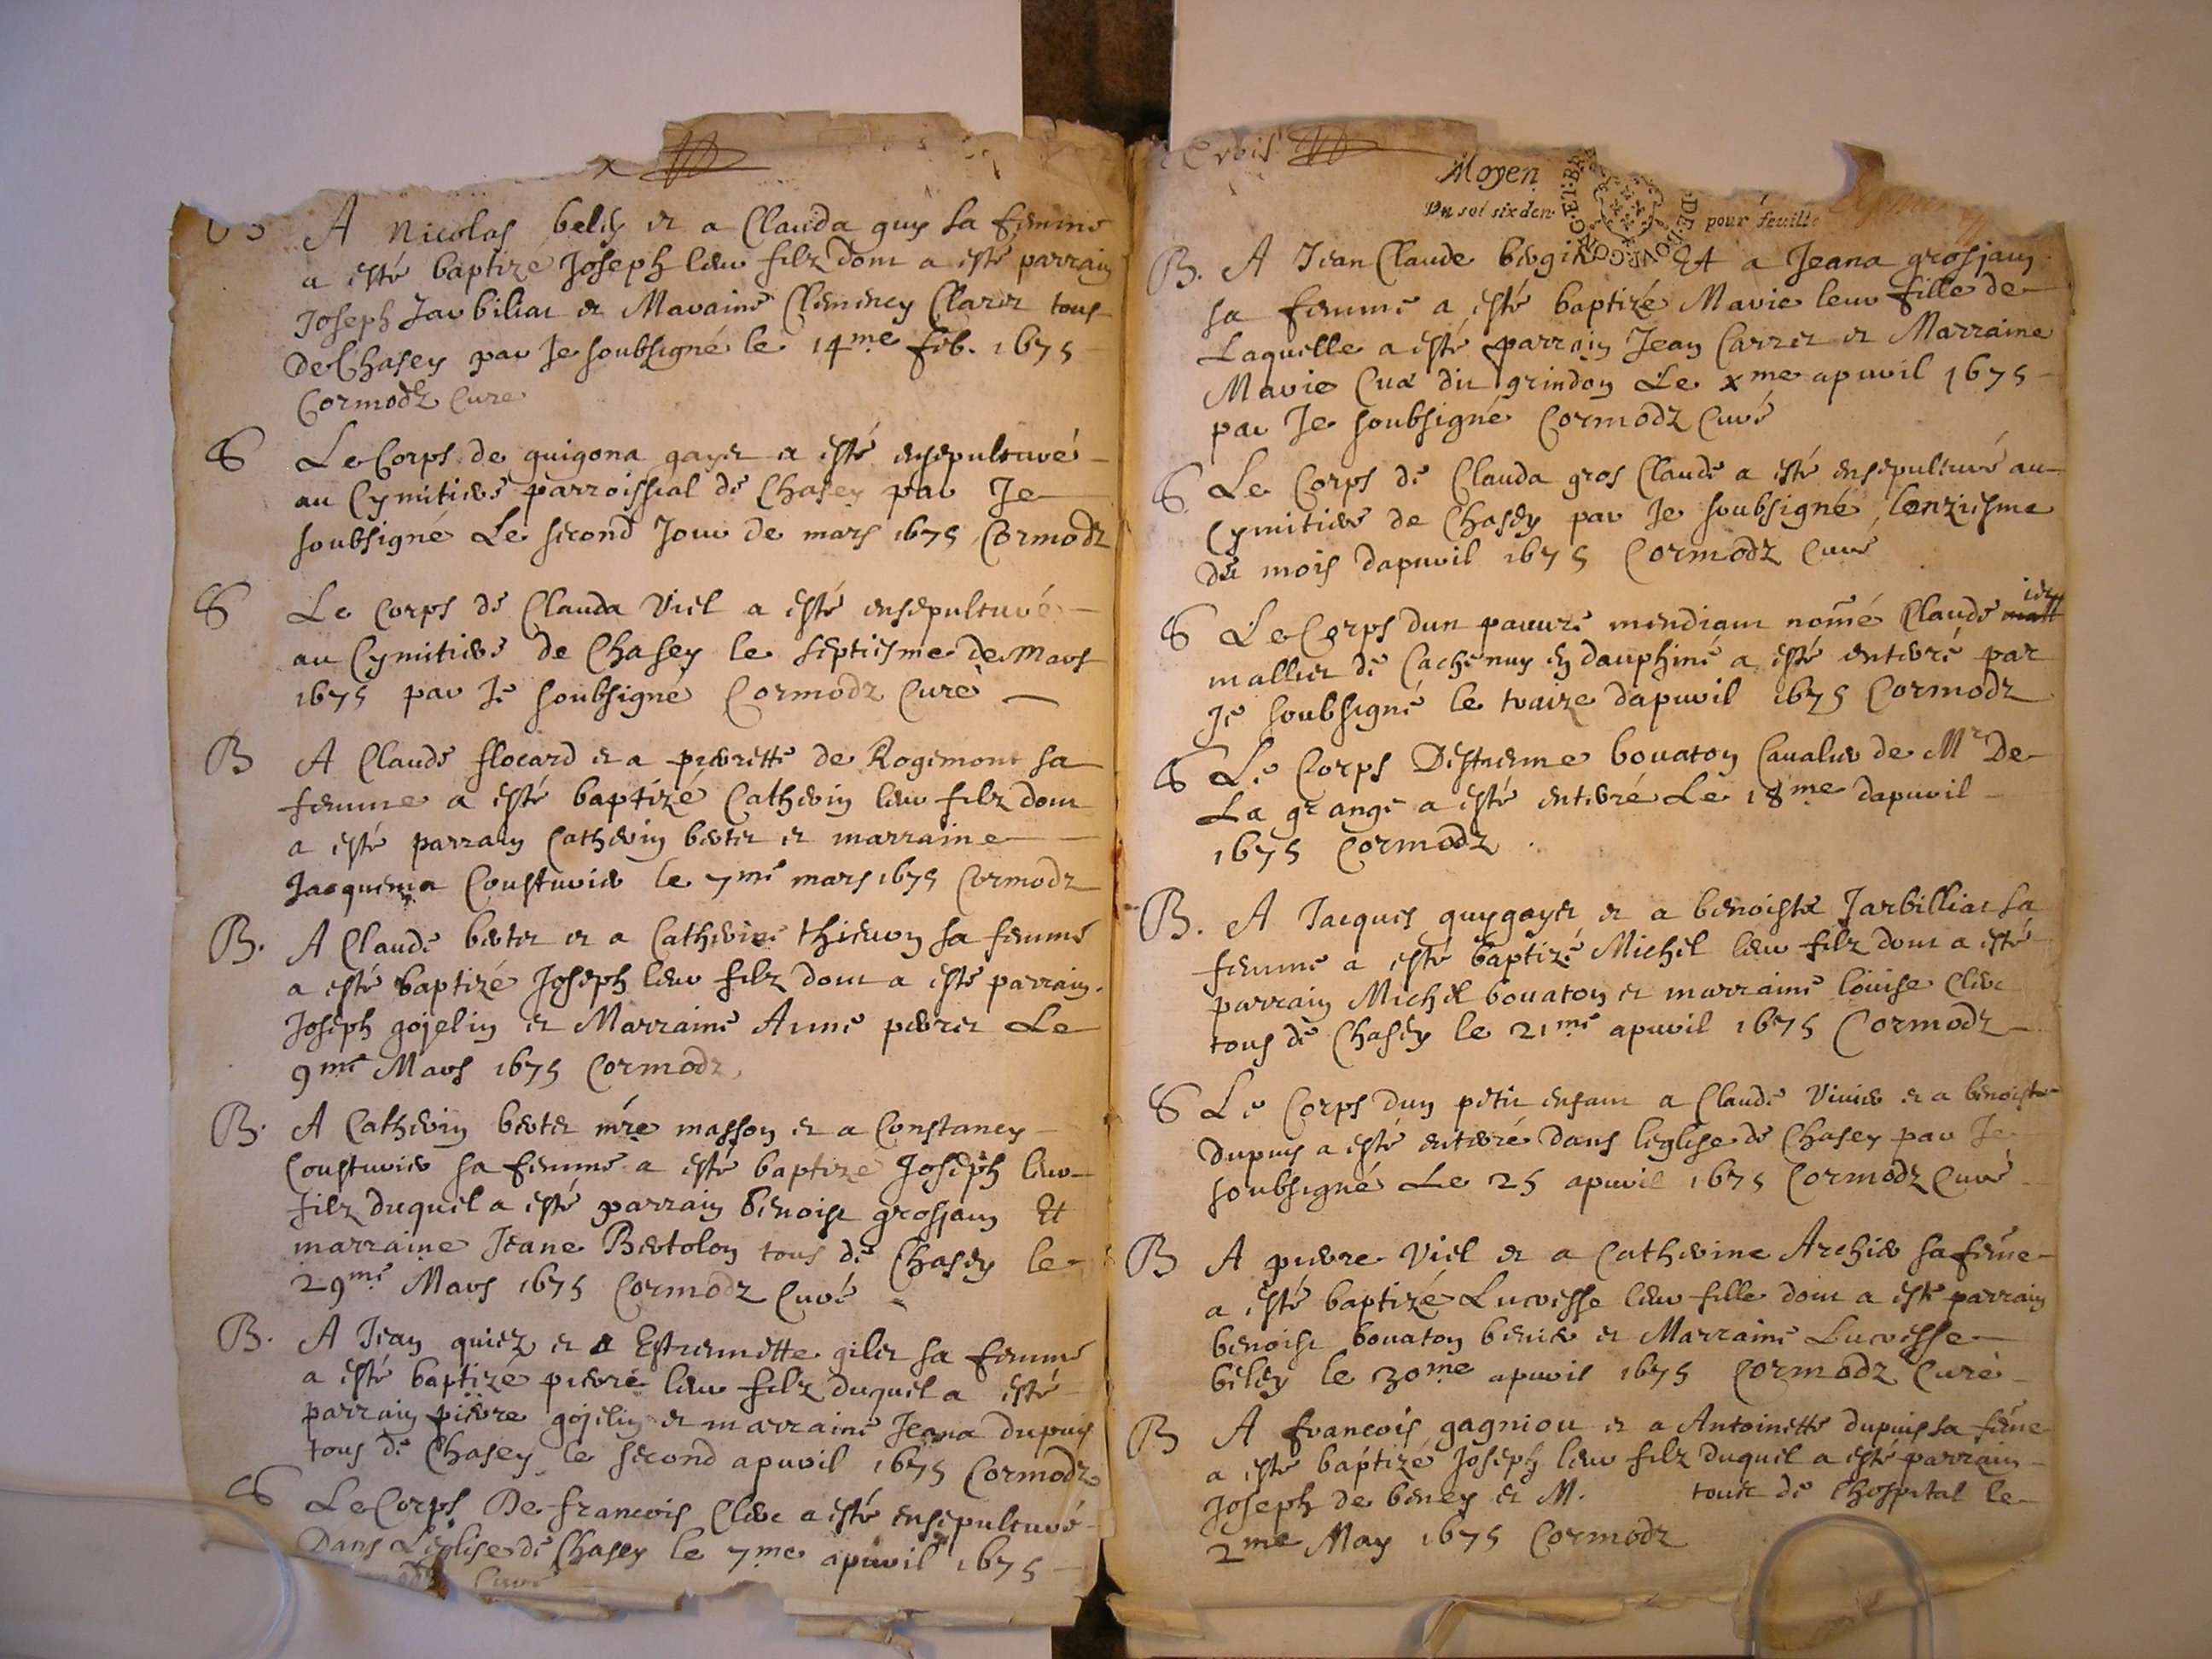 A Nicolas beley et a Clauda guy sa femme
a esté baptizé Joseph leur filz dont a esté parrain
Joseph Jarbiliat et Maraine Clemency Claret tous
de Chasey par Je soubsigné le 14me feb. 1675
Cormodz Curé
S Le Corps de guigona gayet a esté ensepulturé
au Cymitiere parroissial de Chasey par Je
soubsigné Le second Jour de mars 1675 Cormodz
S Le Corps de Clauda Viel a esté ensepulturé
au Cymitiere de Chasey le septiesme de Mars
1675 par Je soubsigné Cormodz Curé
B A Claude flocard et a pierrette de Rogemont sa
femme a esté baptizé Catherin leur filz dont
a esté parrain Catherin bertet et marraine
Jacquema Cousturier le 7me mars 1675 Cormodz
B. A Claude bertet et a Catherine thievon sa femme
a esté baptizé Joseph leur filz dont a esté parrain
Joseph gojelin et Marraine Anne perret Le
9me Mars 1675 Cormodz
B. A Catherin bertet mre masson et a Constancy
Cousturier sa femme a esté baptizé Joseph leur
filz duquel a esté parrain benoist grosjean Et
marraine Jeane Bertolon tous de Chasey le
29me Mars 1675 Cormodz Curé
B. A Jean quiez et a Estiennette gilet sa femme
a esté baptizé pierre leur filz duquel a esté
parrain pierre gojelin et marraine Jeana dupuis
tous de Chasey le second apuril 1675 Cormodz
S Le Corps De francois Clerc a esté ensepulturé
Dans L'eglise de Chasey le 7me apuril 1675
Curé
Moyen
Un sol six den pour feuille
B. A Jean Claude Et a Jeana grosjean
sa femme a esté baptizé Marie leur fille de
Laquelle a esté parrain Jean Carret et Marraine
Marie dit grindon Le xme apuril 1675
par Je soubsigné Cormodz Curé
S Le Corps de Clauda gros Claude a esté ensepulturé au
Cymitiere de Chasey par Je soubsigné lonziesme
du mois dapuril 1675 Cormodz Curé
S Le Corps dun pauure mendiant nomé Claude
mallier de Cachenuy en dauphiné a esté enterré par
Je soubsigné le traize dapuril 1675 Cormodz
S Le Corps Destienne bouaton Caualier de Mr De
La grange a esté enterré Le 18me dapuril
1675 Cormodz
B. A Jacques guygayet et a benoista Jarbilliat sa
femme a esté baptizé Michel leur filz dont a esté
parrain Michel bouaton et marraine louise Clerc
tous de Chasey le 21me apuril 1675 Cormodz
S Le Corps dun petit enfant a Claude Vivier et a benoiste
Dupuis a esté enterré dans leglise de Chasey par Je
soubsigné Le 25 apuril 1675 Cormodz Curé
B A pierre Viel et a Catherine Archier sa feme
a esté baptizé Lucresse leur fille dont a esté parrain
benoist bouaton et Marraine Lucresse
beley le 30me apuril 1675 Cormodz Curé
B A francois gagniou et a Antoinette dupuis sa feme
a esté baptizé Joseph leur filz duquel a esté parrain
Joseph de beney et M. tous de Lhospital le
2me May 1675 Cormodz